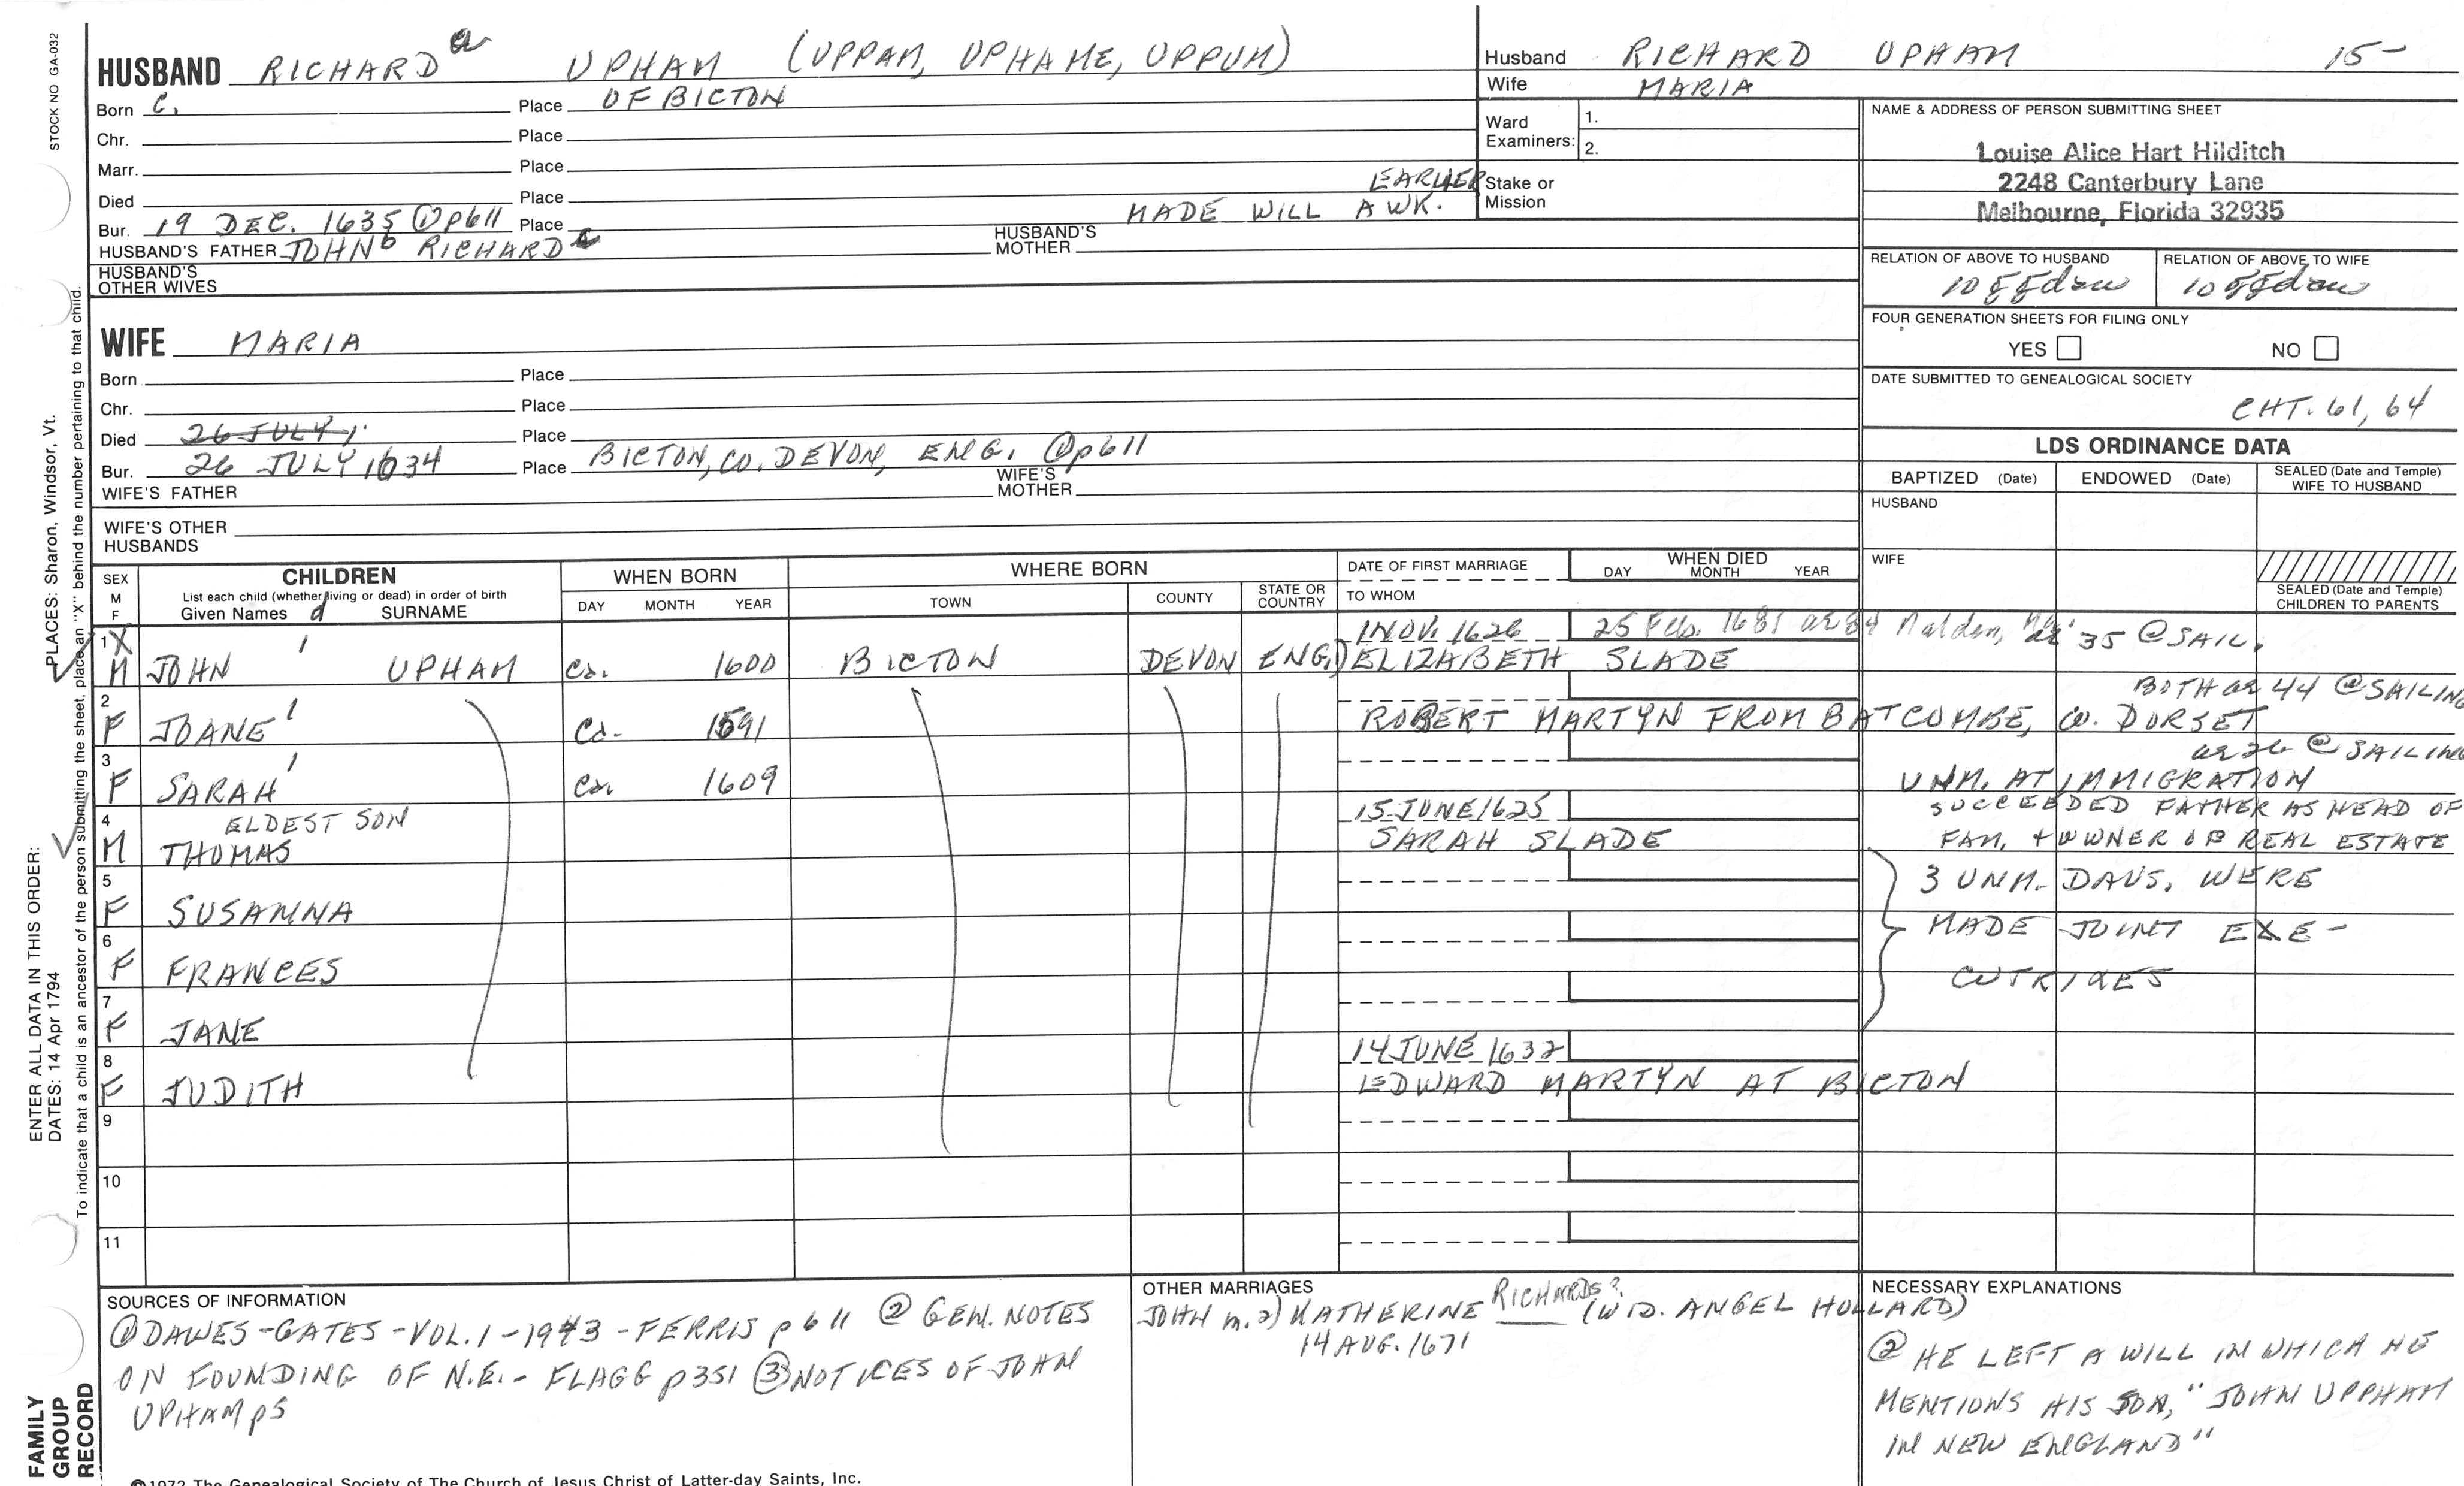 STOCK NO GA-032
HUSBAND RICHARD a UPHAM (UPPAM, UPHAME, UPPUM)
Born C. Place OF BICTON
Chr. Place
Marr. Place
Died Place
Bur. 19 DEC. 1635 ① p611 Place MADE WILL A WK. EARLIER
HUSBAND'S FATHER JOHN b RICHARD c HUSBAND'S MOTHER
HUSBAND'S OTHER WIVES
Husband RICHARD UPHAM 15-
Wife MARIA
Ward Examiners: 1.
2.
Stake or Mission
NAME & ADDRESS OF PERSON SUBMITTING SHEET
Louise Alice Hart Hilditch
2248 Canterbury Lane
Melbourne, Florida 32935
RELATION OF ABOVE TO HUSBAND RELATION OF ABOVE TO WIFE
10 ggdau 10 ggdau
FOUR GENERATION SHEETS FOR FILING ONLY
YES NO
DATE SUBMITTED TO GENEALOGICAL SOCIETY
CHT. 61, 64
WIFE MARIA
Born Place
Chr. Place
Died 26 JULY Place
Bur. 26 JULY 1634 Place BICTON, CO. DEVON, ENG. ① p611
WIFE'S FATHER WIFE'S MOTHER
WIFE'S OTHER HUSBANDS
LDS ORDINANCE DATA
BAPTIZED (Date) ENDOWED (Date) SEALED (Date and Temple) WIFE TO HUSBAND
HUSBAND
WIFE
SEALED (Date and Temple) CHILDREN TO PARENTS
SEX M F
CHILDREN
List each child (whether living or dead) in order of birth
Given Names d SURNAME
WHEN BORN
DAY MONTH YEAR
WHERE BORN
TOWN COUNTY STATE OR COUNTRY
DATE OF FIRST MARRIAGE
TO WHOM
WHEN DIED
DAY MONTH YEAR
1 X 1 NOV. 1626 25 Feb. 1681 ae 84 Malden, ae 35 @ SAIL.
M JOHN 1 UPHAM ca. 1600 BICTON DEVON ENG.) ELIZABETH SLADE
2 BOTH ae 44 @ SAILING
F JOANE 1 ca. 1591 ROBERT MARTYN FROM BATCOMBE, CO. DORSET
3 ae 26 @ SAILING
F SARAH 1 ca. 1609 UNM. AT IMMIGRATION
4 ELDEST SON 15 JUNE 1625 SUCCEEDED FATHER AS HEAD OF
M THOMAS SARAH SLADE FAM. + OWNER OF REAL ESTATE
5 3 UNM. DAUS. WERE
F SUSANNA
6 MADE JOINT EXE-
F FRANCES CUTRIXES
7
F JANE
8 14 JUNE 1632
F JUDITH EDWARD MARTYN AT BICTON
9
10
11
SOURCES OF INFORMATION
① DAWES-GATES-VOL. 1-1943-FERRIS p 611 ② GEN. NOTES
ON FOUNDING OF N.E.- FLAGG p351 ③ NOTICES OF JOHN
UPHAM p5
OTHER MARRIAGES
JOHN m. 2) KATHERINE RICHARDS? (WID. ANGEL HOLLARD)
14 AUG. 1671
NECESSARY EXPLANATIONS
② HE LEFT A WILL IN WHICH HE
MENTIONS HIS SON, "JOHN UPPHAM
IN NEW ENGLAND"
©1972 The Genealogical Society of The Church of Jesus Christ of Latter-day Saints, Inc.
ENTER ALL DATA IN THIS ORDER:
DATES: 14 Apr 1794 PLACES: Sharon, Windsor, Vt.
To indicate that a child is an ancestor of the person submitting the sheet, place an "X" behind the number pertaining to that child.
FAMILY
GROUP
RECORD